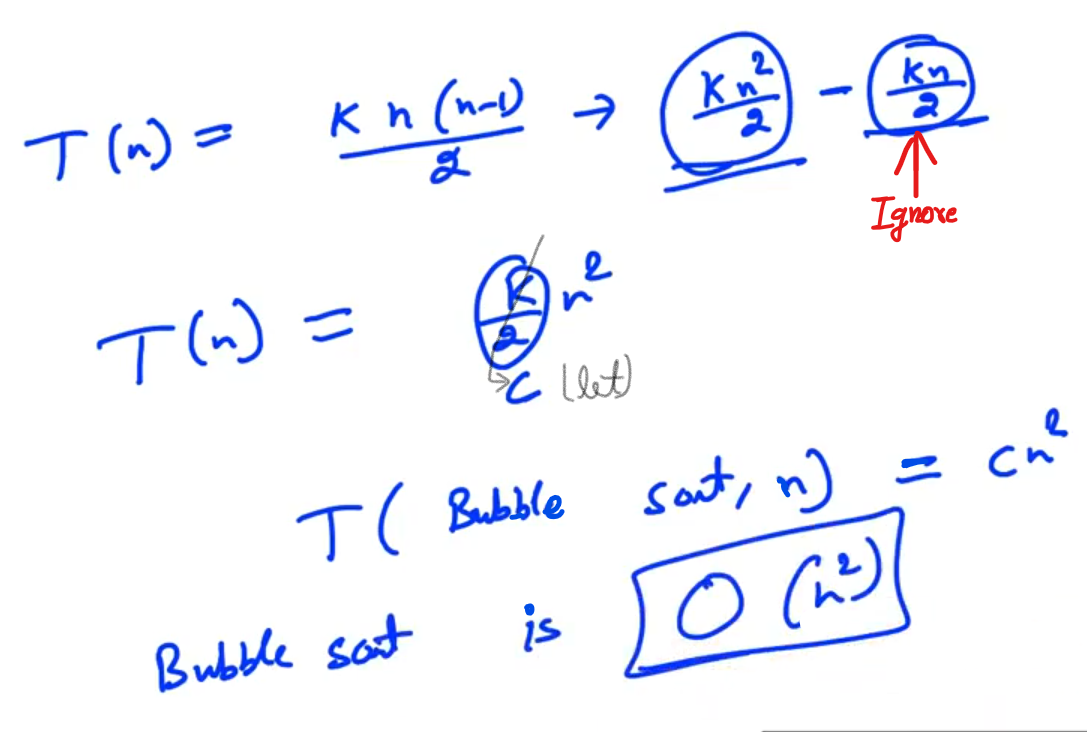 T(n) = K n (n-1) / 2 → K n² / 2 - K n / 2
Ignore
T(n) = K / 2 n²
C (let)
T( Bubble sort, n) = cn²
Bubble sort is O (n²)